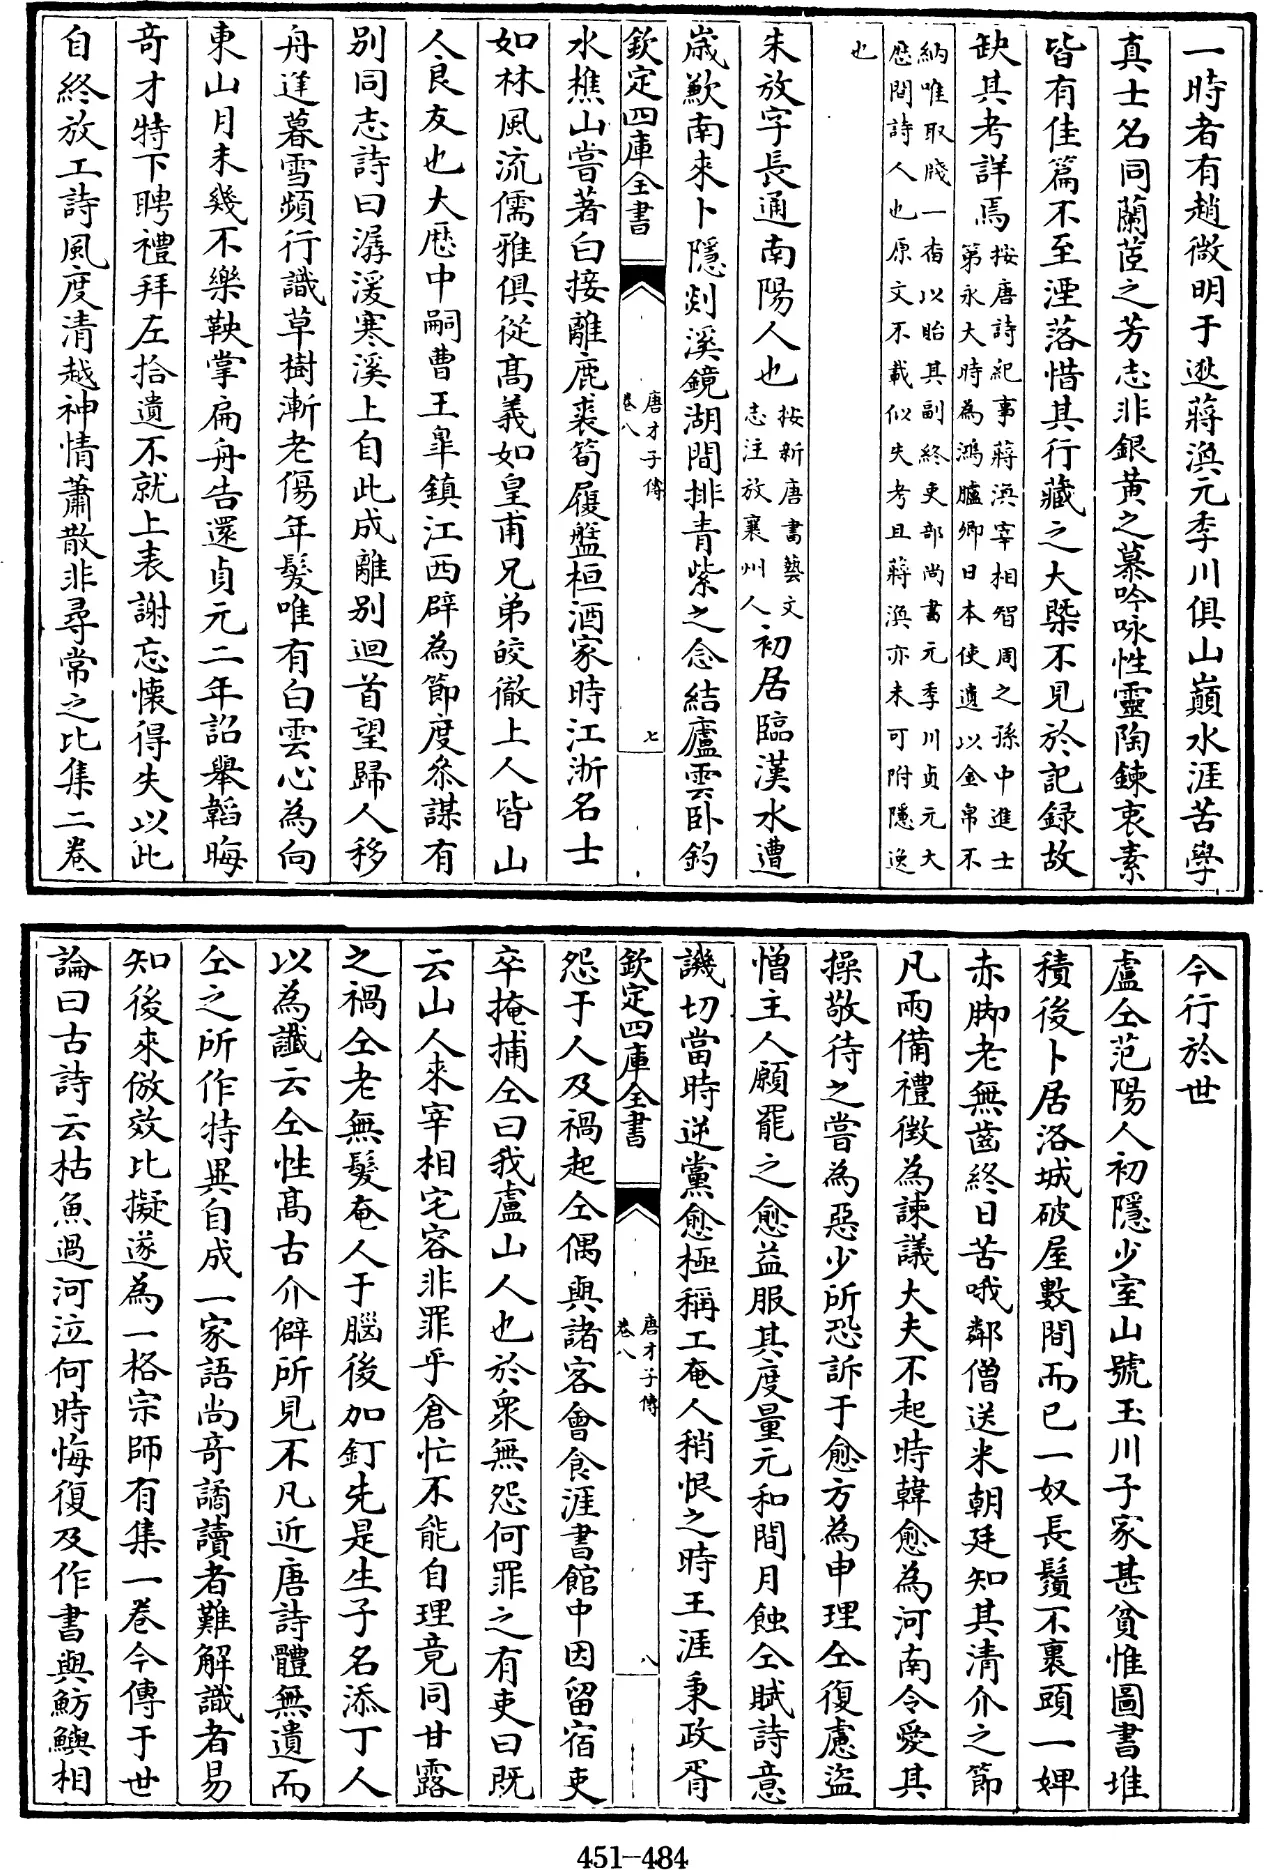 一時者有趙微明于逖蔣渙元季川俱山巔水涯苦學
真士名同蘭茝之芳志非銀黄之慕吟咏性靈陶鍊衷素
皆有佳篇不至湮落惜其行藏之大槩不見於記録故
缺其考詳焉
按唐詩紀事蔣渙宰相智周之孫中進士
第永大時為鴻臚卿日本使遺以金帛不
納唯取牋一畨以貽其副終吏部尚書元季川貞元大
歴間詩人也原文不載似失考且蔣渙亦未可附隱逸
也
朱放字長通南陽人也
按新唐書藝文
志注放襄州人
初居臨漢水遭
嵗歉南來卜隱剡溪鏡湖間排青紫之念結廬雲卧釣
欽定四庫全書
唐才子傳
卷八
七
水樵山嘗著白接䍦鹿裘筍履盤桓酒家時江浙名士
如林風流儒雅俱從髙義如皇甫兄弟皎徹上人皆山
人良友也大厯中嗣曹王臯鎮江西辟為節度叅謀有
别同志詩曰潺湲寒溪上自此成離别迴首望歸人移
舟逢暮雪頻行識草樹漸老傷年髮唯有白雲心為向
東山月未幾不樂鞅掌扁舟告還貞元二年詔舉韜晦
竒才特下聘禮拜左拾遺不就上表謝忘懷得失以此
自終放工詩風度清越神情蕭散非尋常之比集二卷
今行於世
盧仝范陽人初隱少室山號玉川子家甚貧惟圖書堆
積後卜居洛城破屋數間而已一奴長鬚不裹頭一婢
赤脚老無齒終日苦哦鄰僧送米朝廷知其清介之節
凡兩備禮徴為諫議大夫不起時韓愈為河南令愛其
操敬待之嘗為惡少所恐訴于愈方為申理仝復慮盜
憎主人願罷之愈益服其度量元和間月蝕仝賦詩意
譏切當時逆黨愈極稱工奄人稍恨之時王涯秉政胥
欽定四庫全書
唐才子傳
卷八
八
怨于人及禍起仝偶與諸客會食涯書館中因留宿吏
卒掩捕仝曰我盧山人也於衆無怨何罪之有吏曰既
云山人來宰相宅容非罪乎倉忙不能自理竟同甘露
之禍仝老無髮奄人于腦後加釘先是生子名添丁人
以為讖云仝性髙古介僻所見不凡近唐詩體無遺而
仝之所作特異自成一家語尚竒譎讀者難解識者易
知後來倣效比擬遂為一格宗師有集一卷今傳于世
論曰古詩云枯魚過河泣何時悔復及作書與魴鱮相
451-484